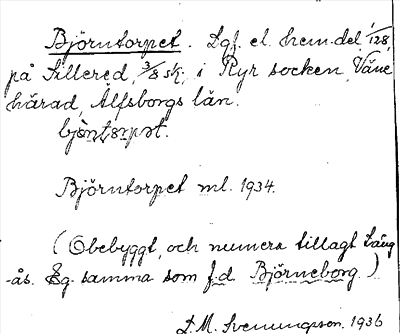 Björntorpet. Lgf. el. hem.del 1/128,
på Sillered, 3/8 sk, i Ryr socken, Väne
härad, Älfsborgs län.
bjöntorpət.
Björntorpet ml. 1934.
(Obebyggt, och numera tillagt Läng
-ås. Eg. samma som f.d. Björneborg.)
L. M. Svenungsson, 1936